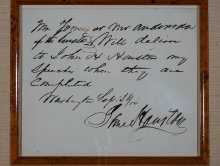 Mr or Mr Anderson
of the Senate Will deliver
to John H Houston my
Speeches when they are
Completed
Washington
Sam Houston